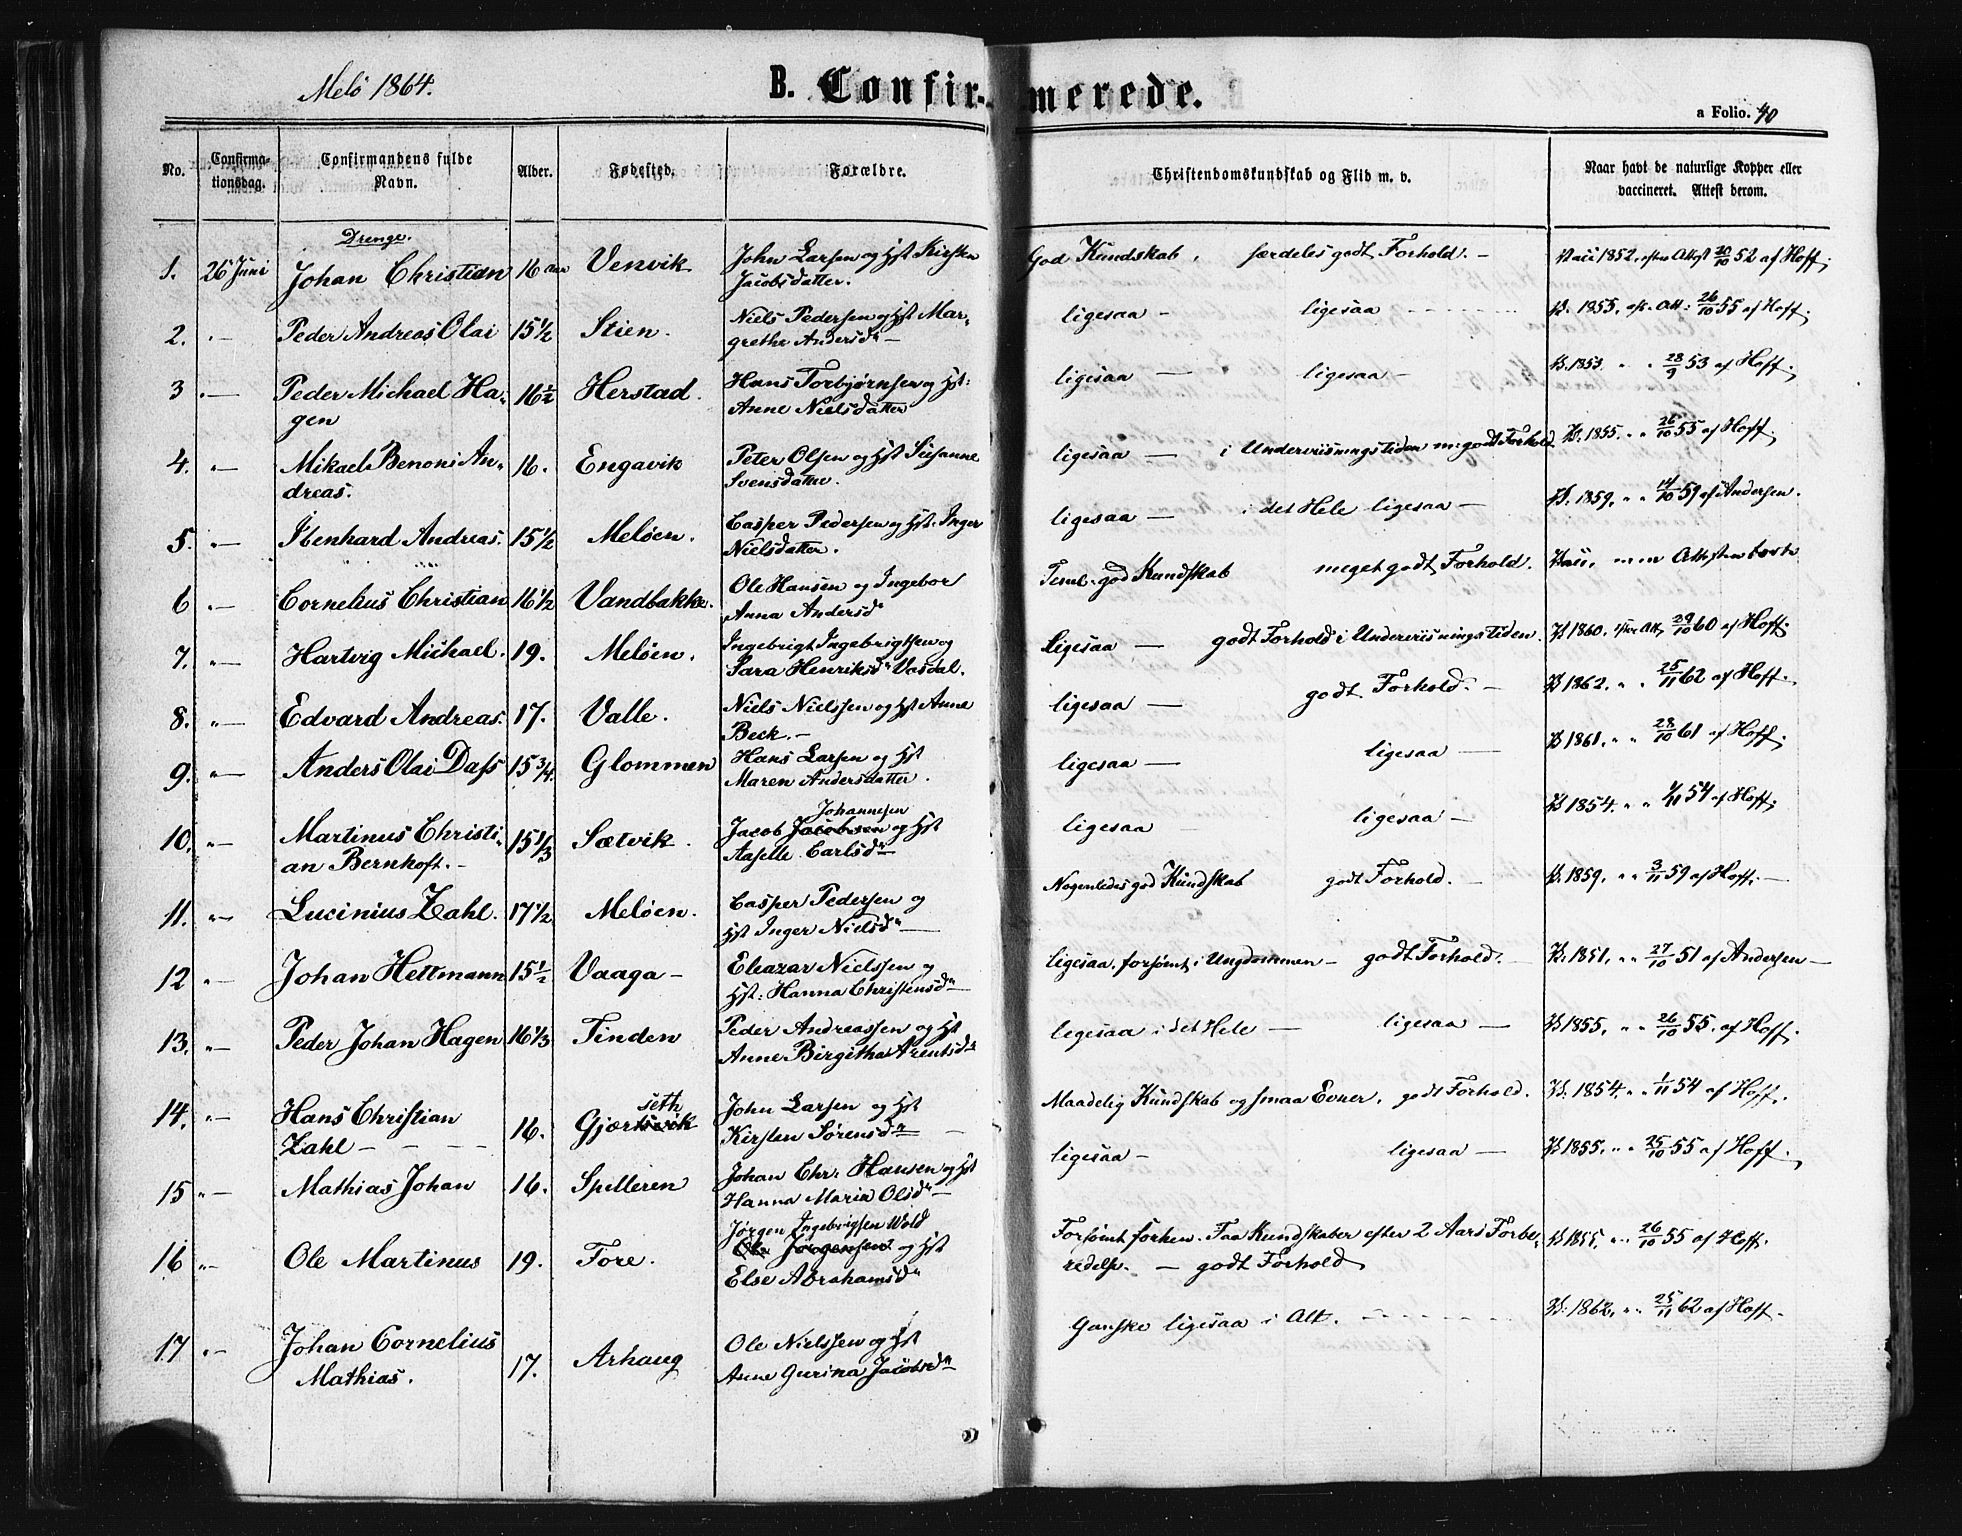 Melö 1864.
B. Confirmerede.
a Folio. 40
No.
Confirma-
tionsdag.
Confirmandens fulde
Navn.
Alder.
Fødested.
Forældre.
Christendomskundskab og Flid m. v.
Naar havt de naturlige Kopper eller
vaccineret. Attest derom.
Drenge.
1. 26 Juni Johan Christian 16 aar Venvik John Larsen og Hst Kirsten
Jacobsdatter.
God Kundskab, særdeles godt Forhold. - Vacc 1852, efter Attest 20/10 52 af Hoff.
2. " Peder Andreas Olai 15 1/2 Stien. Niels Pedersen og Hst Mar-
grethe Andersdr
ligesaa - ligesaa - V. 1855, eft. Att: 26/10 55 af Hoff.
3 " Peder Michael Ha-
gen 16 1/2 Herstad. Hans Torbjørnsen og Hst:
Anne Nielsdatter
ligesaa - ligesaa - V. 1853. " " 28/9 53 af Hoff.
4. " Mikael Benoni An-
dreas. 16. Engavik Peter Olsen og Hst Susanne
Svensdatter.
ligesaa - i Underviisningstiden m: godt Forhold V. 1855. " " 26/10 55 af Hoff.
5. " Ibenhard Andreas. 15 1/2 Meløen. Casper Pedersen og Hst. Inger
Nielsdatter.
ligesaa - i det Hele ligesaa - V. 1859. " " 14/10 59 af Andersen.
6 " Cornelius Christian 16 1/2 Vandbakke. Ole Hansen og Ingebor
Anna Andersdr
Teml. god Kundskab meget godt Forhold. Vacc, men Attesten borte
7. " Hartvig Michael. 19. Meløen. Ingebrigt Ingebrigtsen og
Sara Henriksdr Vasdal.
Ligesaa - godt Forhold i Underviisningstiden. V 1860. efter Att, 29/10 60 af Hoff.
8. " Edvard Andreas. 17. Valle. Niels Nielssen og Hst Anne
Beck. -
ligesaa - godt Forhold. - V 1862. " " 25/11 62 af Hoff.
9. " Anders Olai Dass 15 3/4. Glommen Hans Larsen og Hst
Maren Andersdatter.
ligesaa - ligesaa - V 1861. " " 28/10 61 af Hoff.
10. " Martinus Christi-
an Bernhoft. - 15 1/3 Sætvik. Johannesen
Jacob Jacobsen og Hst
Aaselle Carlsdr
ligesaa ligesaa - V 1854. " " 1/11 54 af Hoff.
11. " Lucinius Zahl. 17 1/2 Meløen. Casper Pedersen og
Hst Inger Nielsdr
Nogenledes god Kundskab godt Forhold. - V. 1859. " " 3/11 59 af Hoff. -
12 " Johan Hettmann 15 1/2 Vaaga - Eleazar Nielssen og
Hst: Hanna Christensdr
ligesaa, forsømt i Ungdommen - godt Forhold. - V. 1851, " " 27/10 51 af Andersen -
13. " Peder Johan Hagen 16 1/3 Tinden Peder Andreassen og Hst
Anne Birgitha Arentsdr
ligesaa i det Hele - ligesaa - V 1855. " " 26/10 55. af Hoff.
14. " Hans Christian
Zahl - - - 16. seth
Gjærsvik John Larsen og Hst
Kirsten Sørensdr -
Maadelig Kundskab og smaa Evner, godt Forhold. V. 1854. " " 1/11 54 af Hoff.
15 " Mathias Johan 16. Spilleren Johan Chr. Hansen og Hst
Hanna Maria Olsdr
ligesaa - ligesaa - V 1855. " " 25/10 55 af Hoff.
16 " Ole Martinus 19. Tore. Jørgen Ingebrigtsen Wold
Ole Jørgensen og Hst
Else Abrahamsdr
Forsømt forhen. Faa Kundskaber efter 2 Aars Forbe-
redelse. - godt Forhold V 1855, " " 26/10 55 af Hoff.
17 " Johan Cornelius
Mathias. 17. Arhaug Ole Nielssen og Hst
Anne Gurina Jacobsdr
Ganske ligesaa i Alt. - V. 1862, " " 25/11 62 af Hoff -